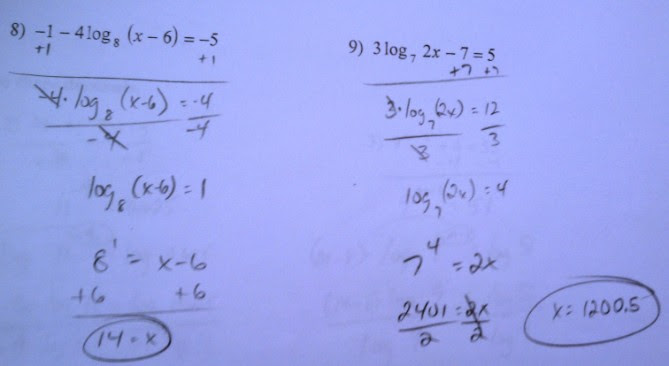 8) −1 − 4 log₈ (x − 6) = −5
+1 +1
-4·log₈ (x-6) = -4
-4 -4
log₈ (x-6) = 1
8¹ = x-6
+6 +6
14 = x
9) 3 log₇ 2x − 7 = 5
+7 +7
3·log₇ (2x) = 12
3 3
log₇ (2x) = 4
7⁴ = 2x
2401 = 2x
2 2
x = 1200.5